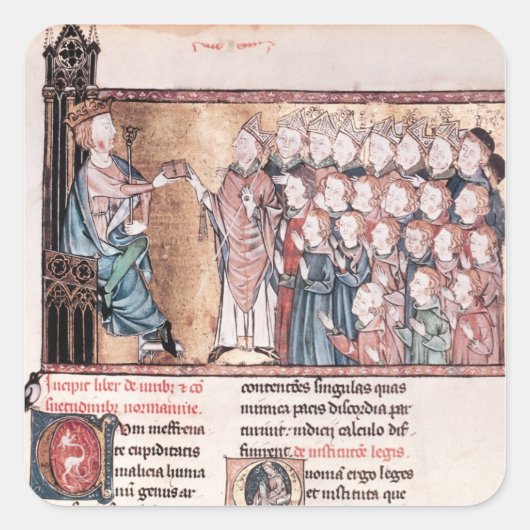 Incipit liber de iuribz et cõ
suetudinibz normannie.
Cum ineffrena
te cupiditatis
malicia huma
nũ genus ar
contentões singulas quas
inimica pacis discordia par
turiunt. iudicij calculo dif
finirent. de institucõe legis.
Quoniam ergo leges
et instituta que